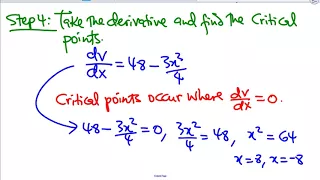 Step 4: Take the derivative and find the Critical
points.
dv/dx = 48 - 3x²/4
Critical points occur where dv/dx = 0.
48 - 3x²/4 = 0, 3x²/4 = 48, x² = 64
x = 8, x = -8